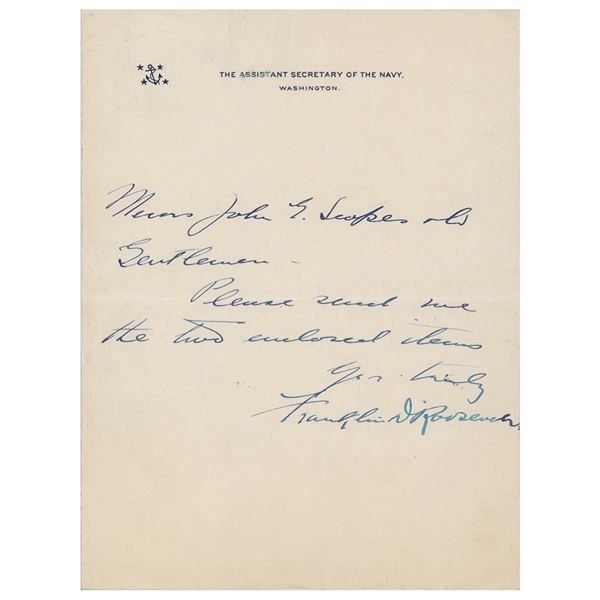 THE ASSISTANT SECRETARY OF THE NAVY.
WASHINGTON.
Messrs John G. Scopes
Gentlemen -
Please send me
the two enclosed items
Yrs. truly
Franklin D Roosevelt